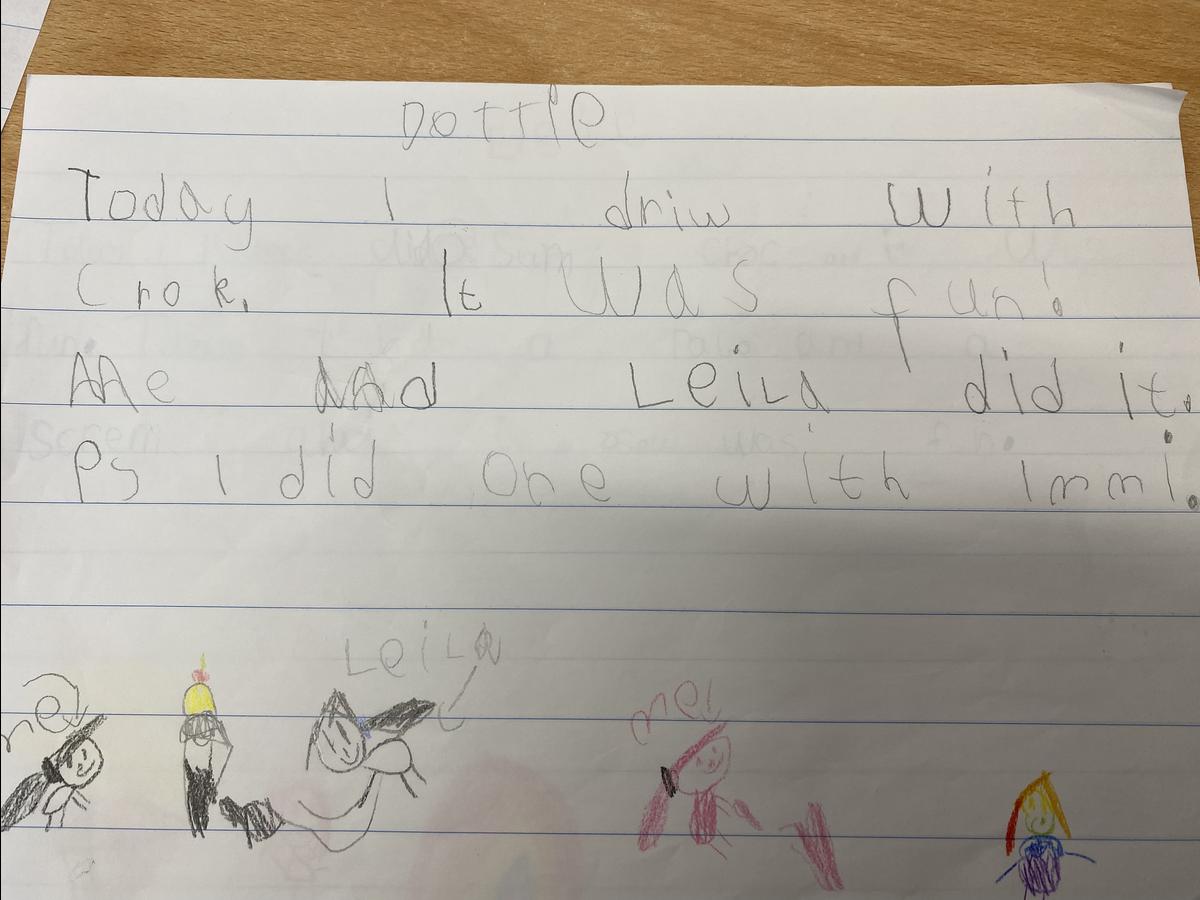 Dottie
Today I driw with
Crok. It was fun!
Me and Leila did it.
Ps I did one with immi.
Leila
me
me